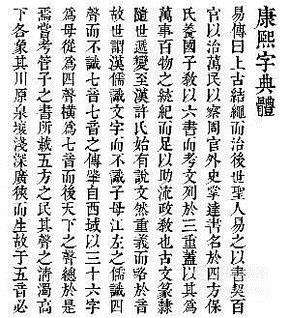 康熙字典體
易傳曰上古結繩而治後世聖人易之以書契百
官以治萬民以察周官外史掌達書名於四方保
氏養國子敎以六書而考文列於三重蓋以其爲
萬事百物之統紀而足以助流政敎也古文篆隸
隨世遞變至漢許氏始有說文然重義而略於音
故世謂漢儒識文字而不識子母江左之儒識四
聲而不識七音七音之傳肇自西域以三十六字
爲母從爲四聲橫爲七音而後天下之聲總於是
焉嘗考管子之書所載五方之民其聲之淸濁高
下各象其川原泉壤淺深廣狹而生故于五音必